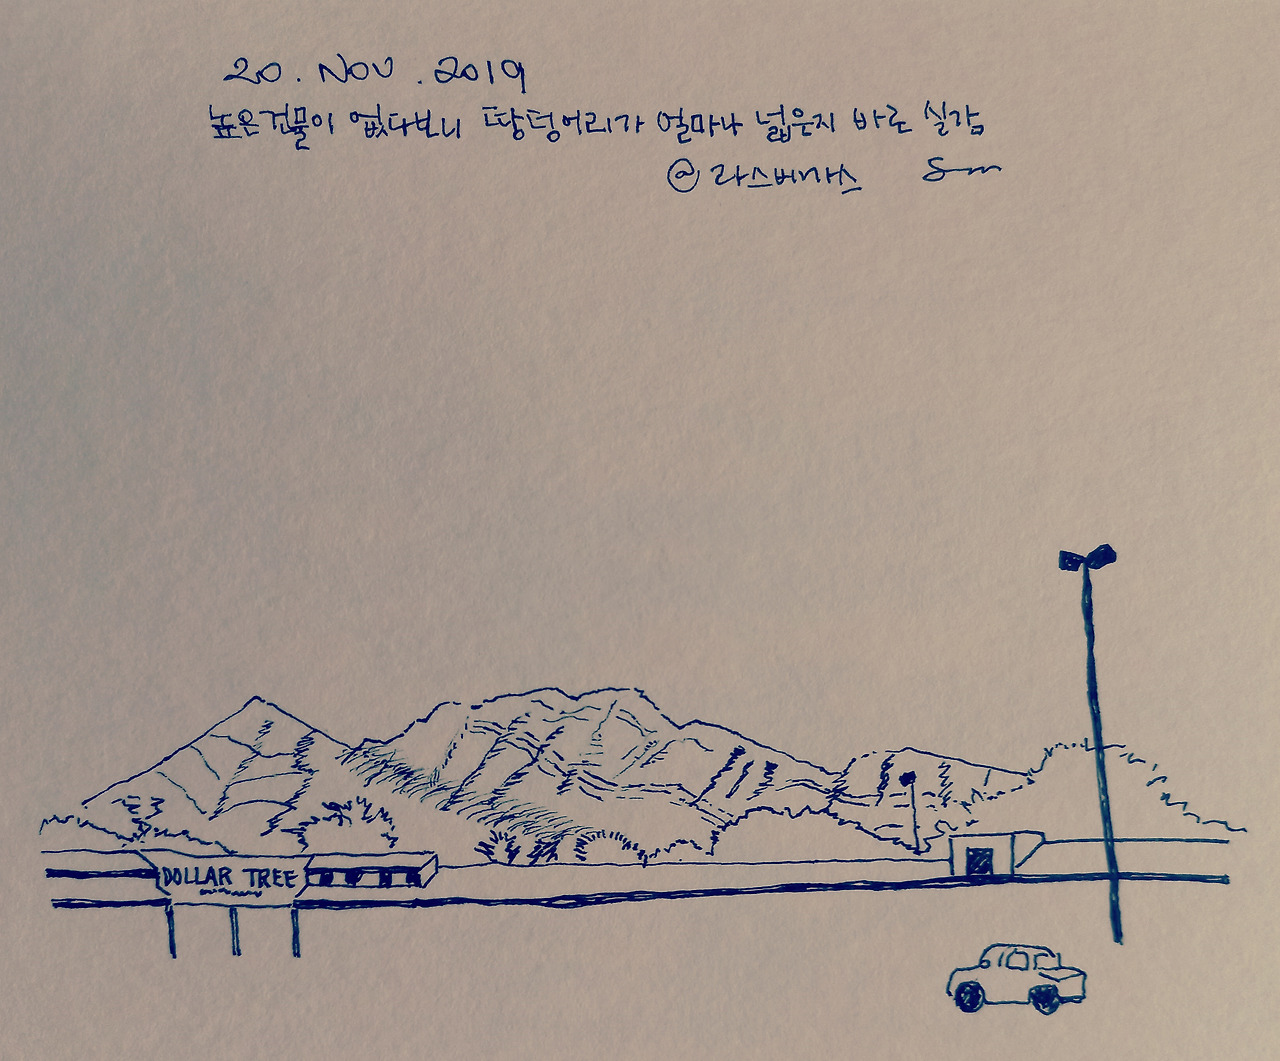 20. NOV. 2019
높은건물이 없다보니 땅덩어리가 얼마나 넓은지 바로 실감
@라스베가스
DOLLAR TREE